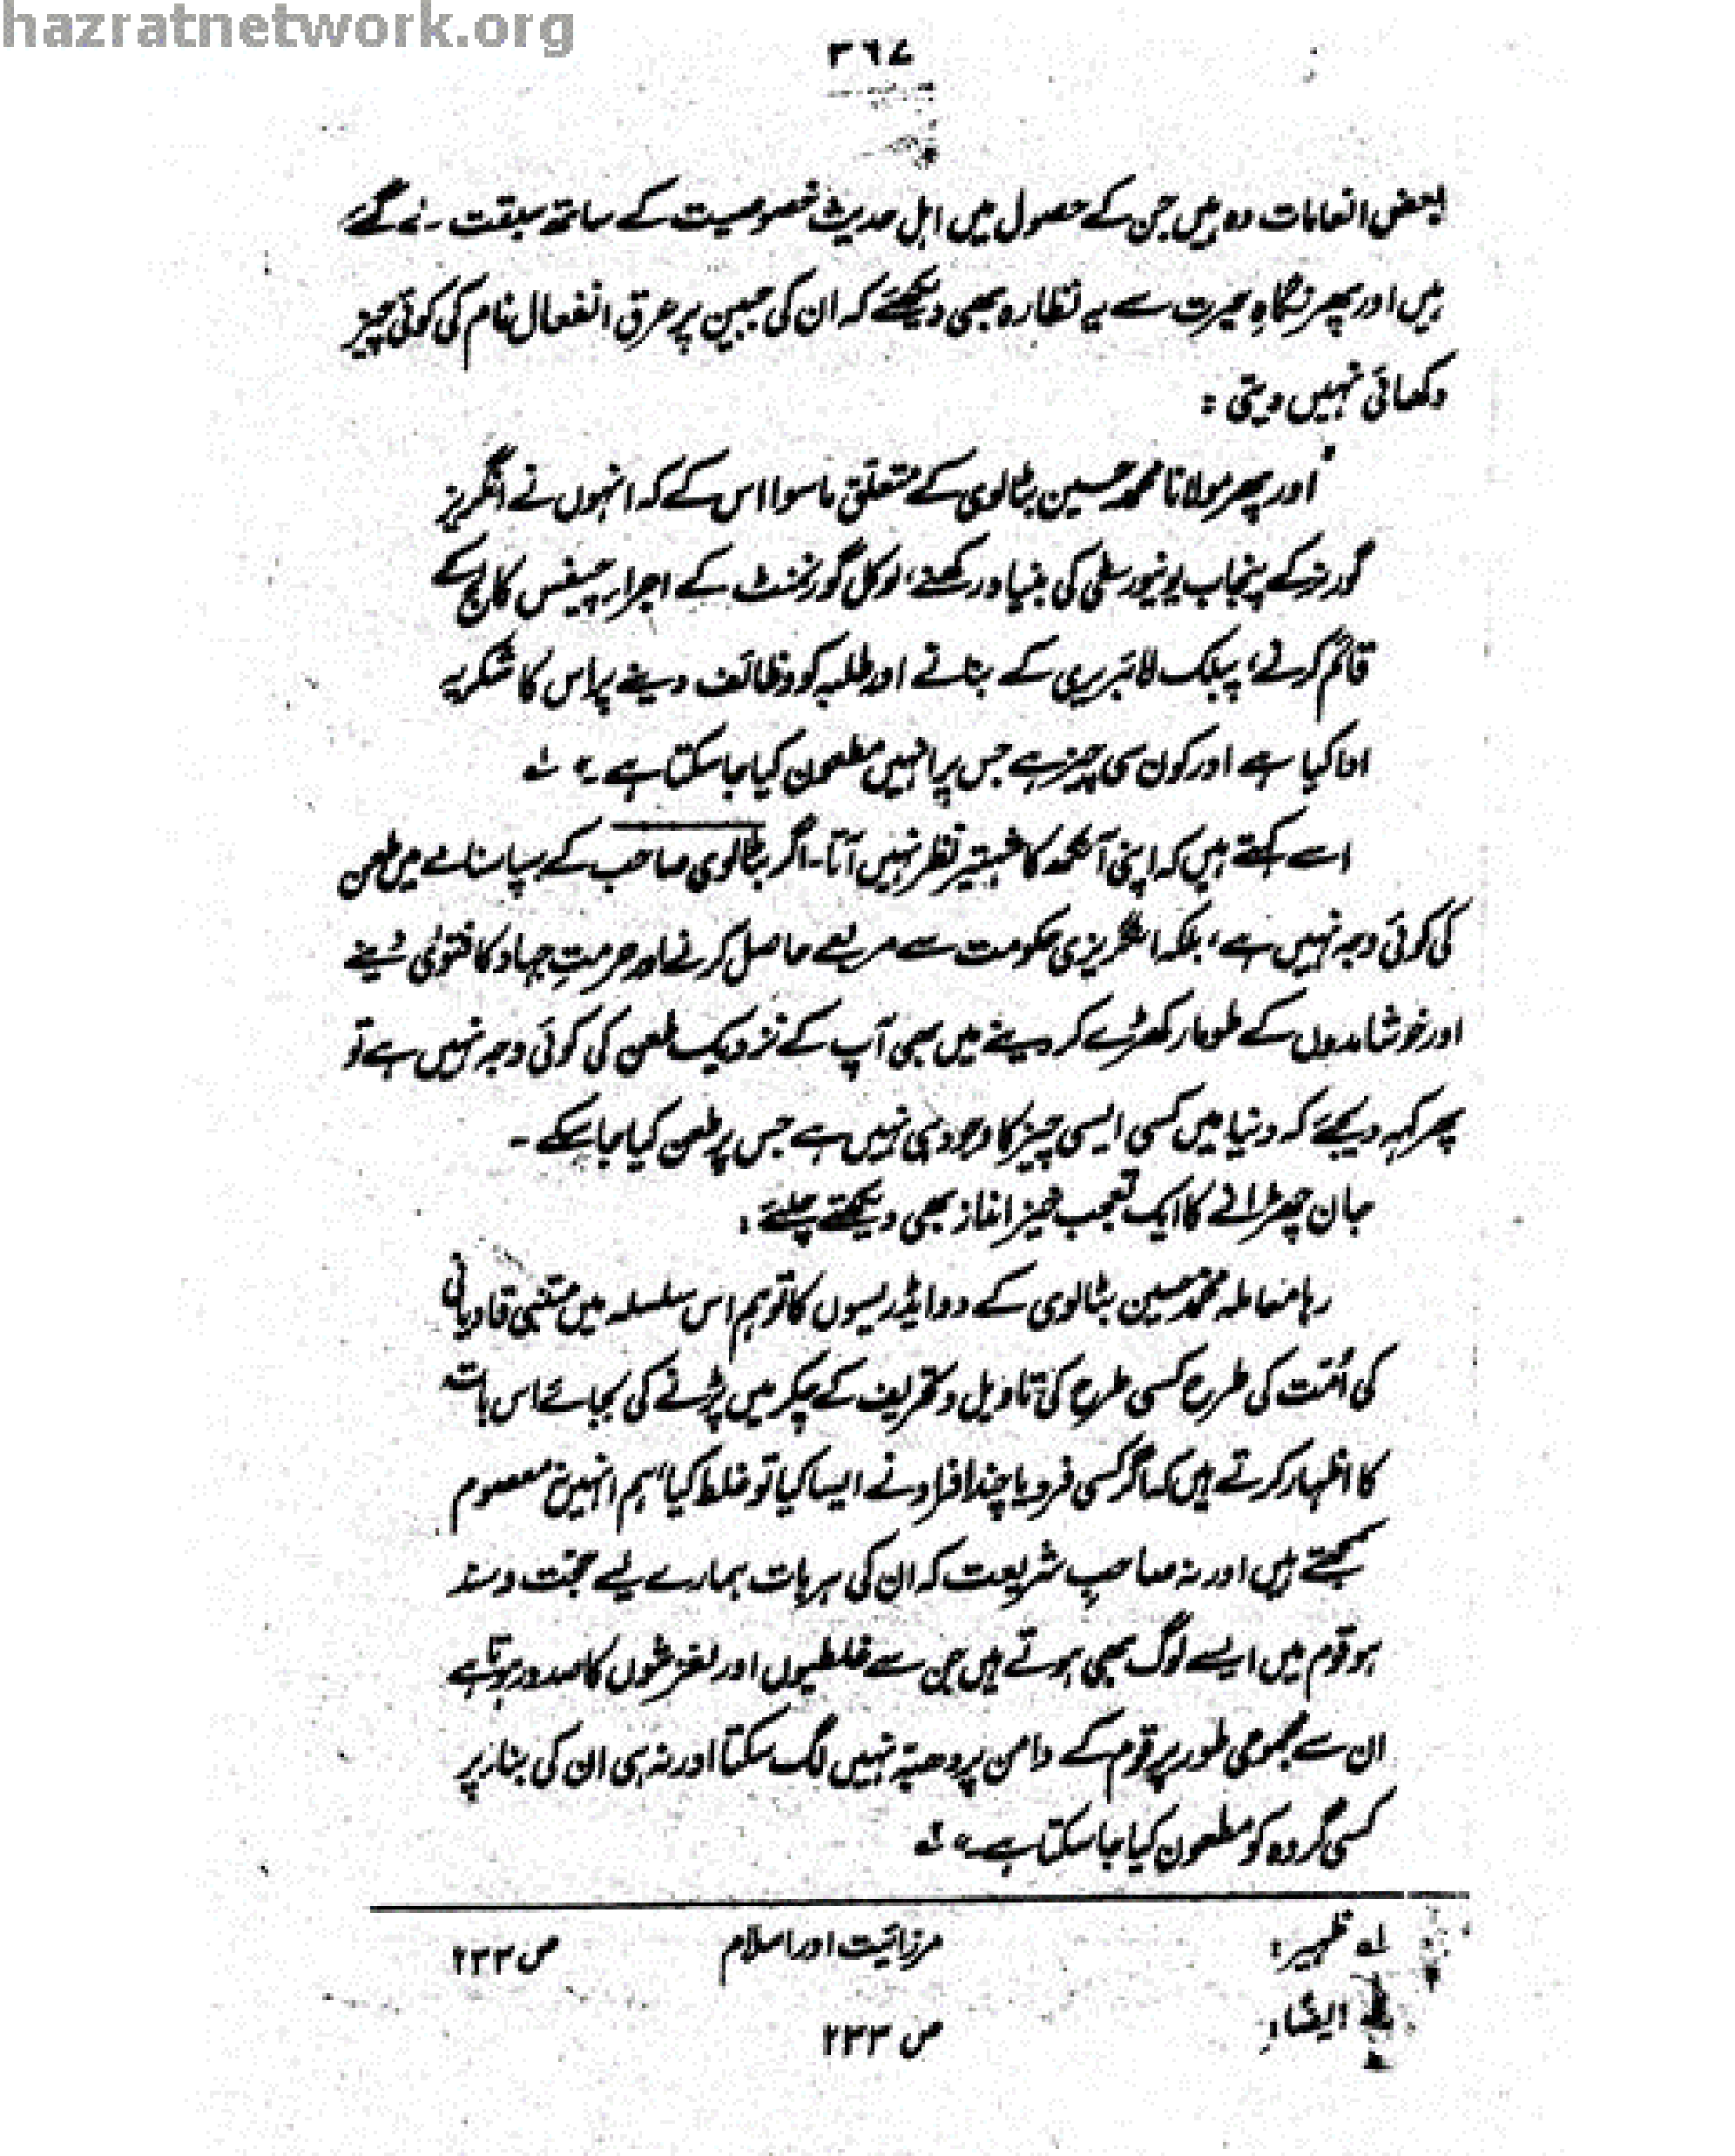 hazratnetwork.org
۳۶۷
بعض انعامات وہ ہیں جن کے حصول میں اہل حدیث خصوصیت کے ساتھ سبقت لے گئے
ہیں اور پھر نگاہِ حیرت سے یہ نظارہ بھی دیکھئے کہ ان کی جبین پر عرق انفعال نام کی کوئی چیز
دکھائی نہیں دیتی :
"اور پھر مولانا محمد حسین بٹالوی کے متعلق ماسوا اس کے کہ انہوں نے انگریز
گورنر کے پنجاب یونیورسٹی کی بنیاد رکھنے، لوکل گورنمنٹ کے اجرار چیفس کالج کے
قائم کرنے، پبلک لائبریری کے بنانے اور طلبہ کو وظائف دینے پر اس کا شکریہ
ادا کیا ہے اور کون سی چیز ہے جس پر انہیں مطعون کیا جا سکتا ہے۔" لہ
اسے کہتے ہیں کہ اپنی آنکھ کا شہتیر نظر نہیں آتا۔ اگر بٹالوی صاحب کے سپاسنامے میں طعن
کی کوئی وجہ نہیں ہے، بلکہ انگریزی حکومت سے مربعے حاصل کرنے اور حرمتِ جہاد کا فتویٰ دینے
اور خوشامدوں کے طومار کھڑے کر دینے میں بھی آپ کے نزدیک طعن کی کوئی وجہ نہیں ہے تو
پھر کہہ دیجئے کہ دنیا میں کسی ایسی چیز کا وجود ہی نہیں ہے جس پر طعن کیا جا سکے ۔
جان چھڑانے کا ایک تعجب خیز انداز بھی دیکھتے چلئے :
رہا معاملہ محمد حسین بٹالوی کے دو ایڈریسوں کا تو ہم اس سلسلہ میں متنبی قادیانی
کی اُمّت کی طرح کسی طرح کی تاویل و تحریف کے چکر میں پڑنے کی بجائے اس بات
کا اظہار کرتے ہیں کہ اگر کسی فرد یا چند افراد نے ایسا کیا تو غلط کیا ہم انہیں نہ معصوم
سمجھتے ہیں اور نہ صاحبِ شریعت کہ ان کی ہر بات ہمارے لیے حجّت و سند
ہو قوم میں ایسے لوگ بھی ہوتے ہیں جن سے غلطیوں اور لغزشوں کا صدور ہوتا ہے
ان سے مجموعی طور پر قوم کے دامن پر دھبّہ نہیں لگ سکتا اور نہ ہی ان کی بنار پر
کسی گروہ کو مطعون کیا جا سکتا ہے۔" لہ
لہ ظہیر: مرزائیت اور اسلام ص ۲۳۳
ایضاً: ص ۲۳۳